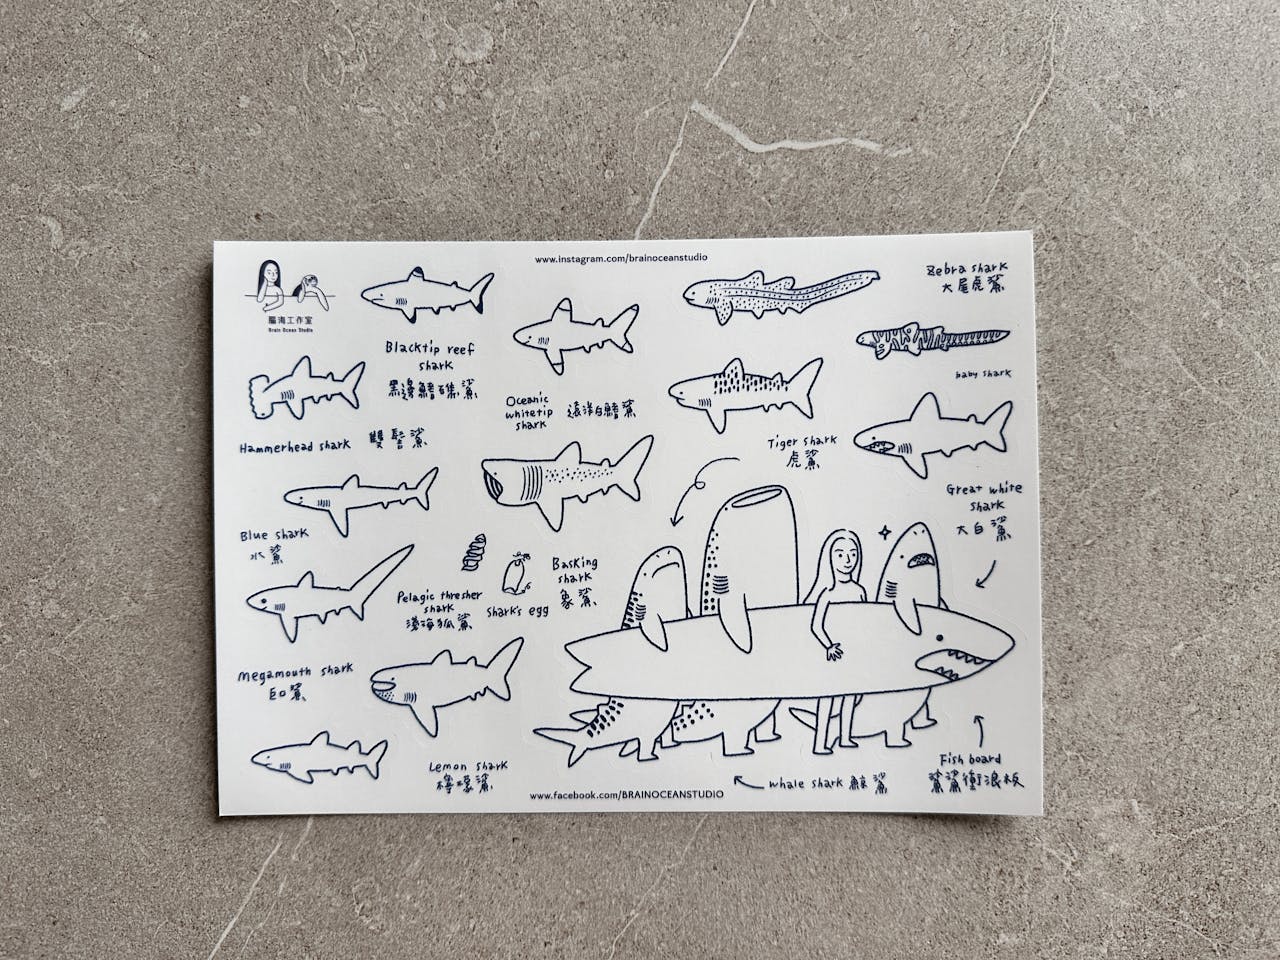 www.instagram.com/brainoceanstudio
腦海工作室
Brain Ocean Studio
Blacktip reef
shark
黑邊鰭礁鯊
Oceanic
whitetip
shark
遠洋白鰭鯊
Zebra shark
大尾虎鯊
baby shark
Hammerhead shark 雙髻鯊
Tiger shark
虎鯊
Great white
shark
大白鯊
Blue shark
水鯊
Pelagic thresher
shark
淺海狐鯊
Shark's egg
Basking
shark
象鯊
Megamouth shark
巨口鯊
Lemon shark
檸檬鯊
whale shark 鯨鯊
Fish board
鯊鯊衝浪板
www.facebook.com/BRAINOCEANSTUDIO